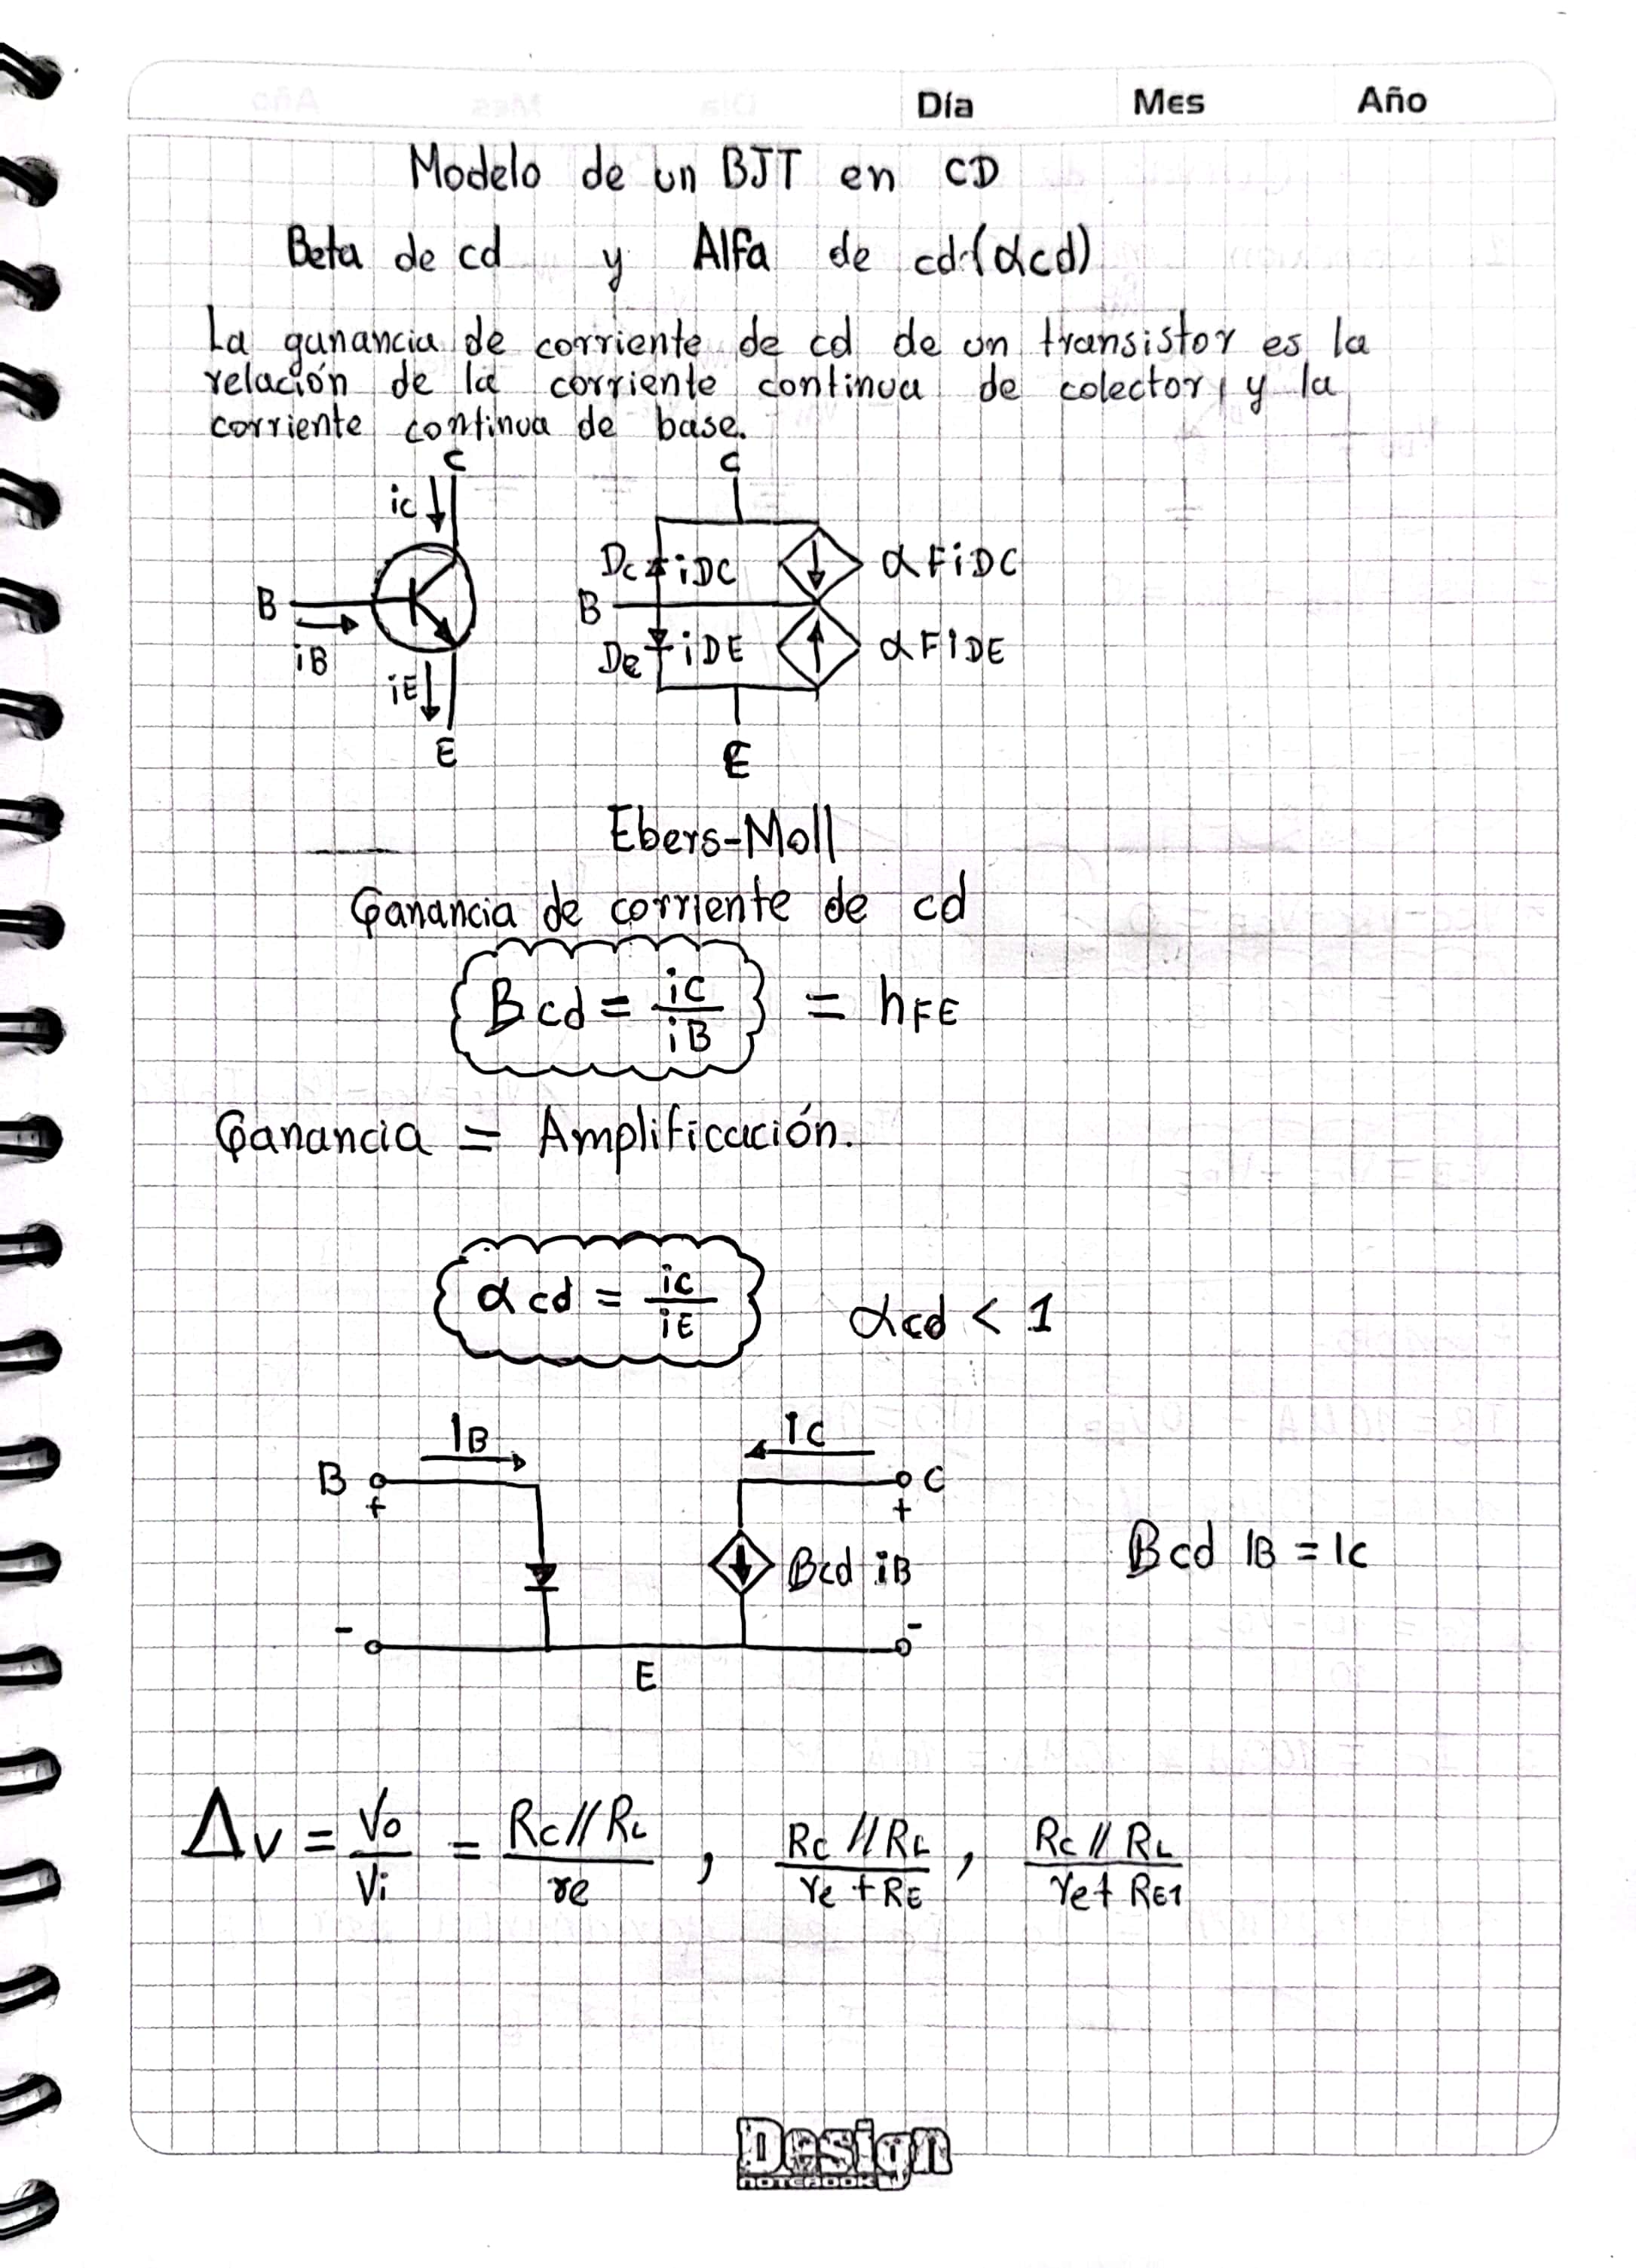 Día Mes Año
Modelo de un BJT en CD
Beta de cd y Alfa de cd (αcd)
La ganancia de corriente de cd de un transistor es la
relación de la corriente continua de colector y la
corriente continua de base.
C
ic
B
iB
iE
E
C
Dc iDC αFiDC
B
De iDE αFIDE
E
Ebers-Moll
Ganancia de corriente de cd
Bcd = ic/iB = hFE
Ganancia = Amplificación.
αcd = ic/iE αcd < 1
IB Ic
B C
+ +
Bcd iB Bcd IB = Ic
- -
E
Δv = Vo/Vi = Rc//RL/re , Rc//RL/re+RE , Rc//RL/re+RE1
Design
NOTEBOOK